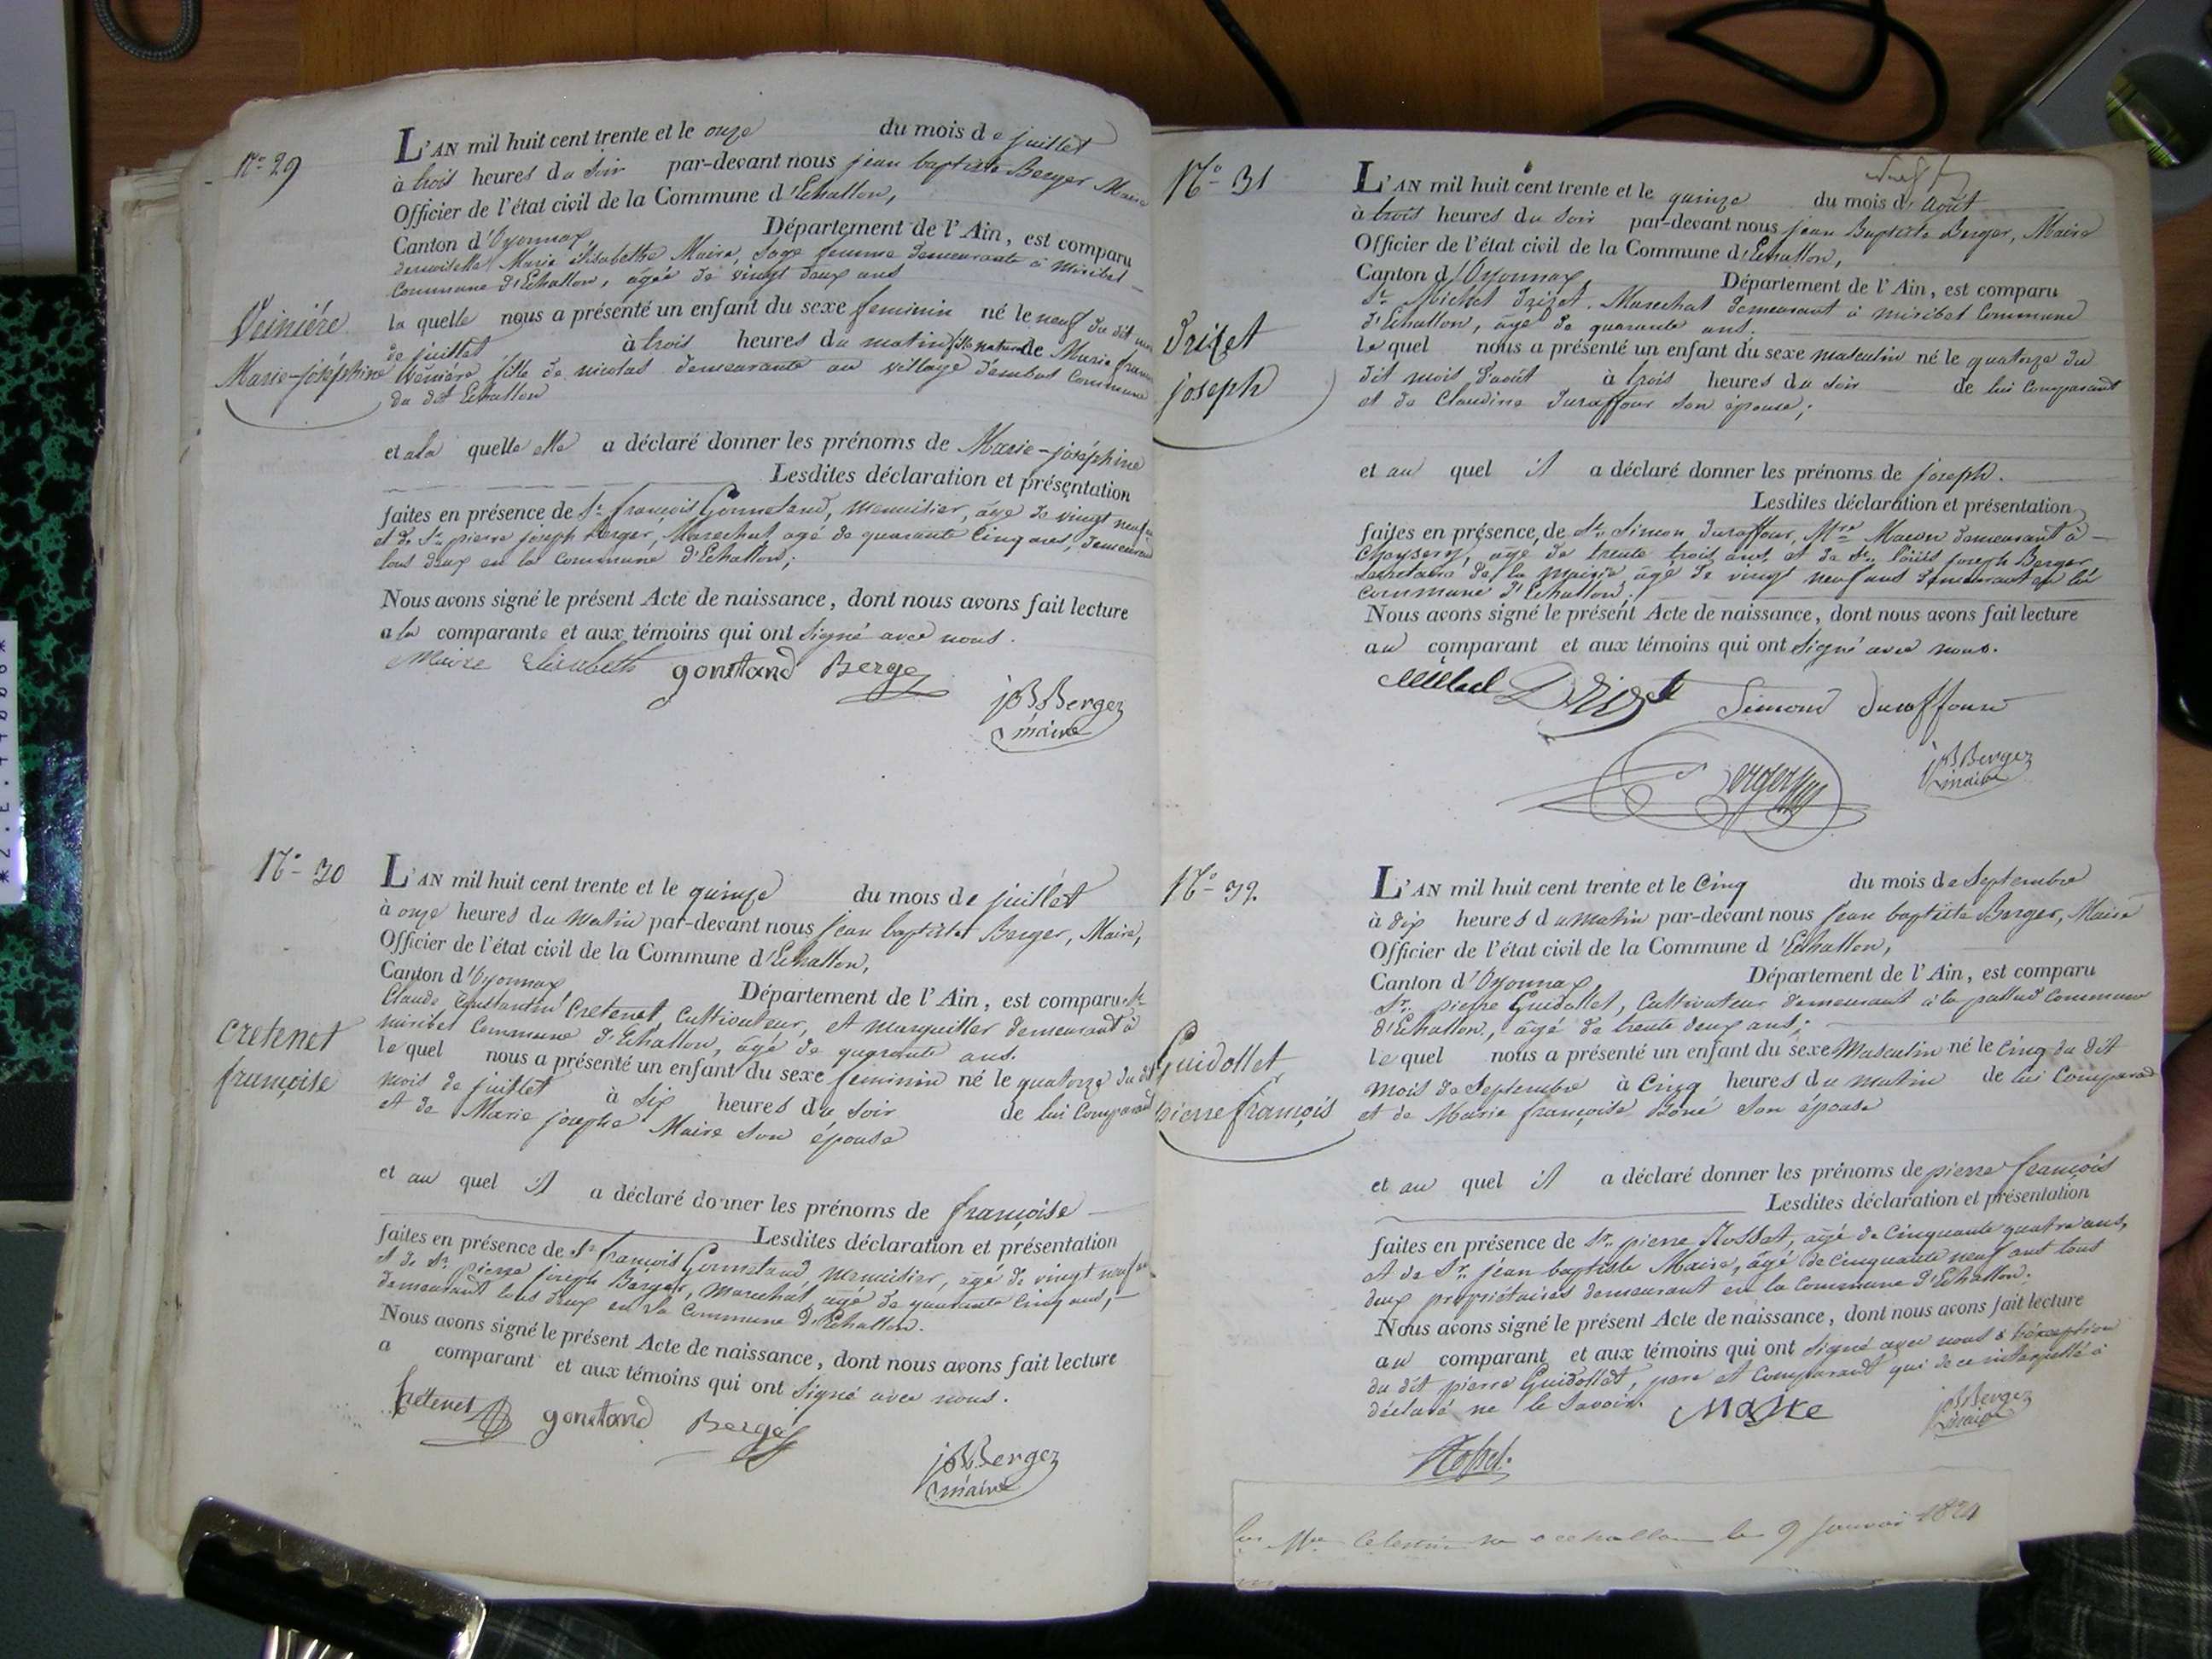 N.° 29
L'AN mil huit cent trente et le onze du mois de juillet
à trois heures du soir par-devant nous jean baptiste Berger Maire
Officier de l'état civil de la Commune d'Echallon,
Canton d'Oyonnax Département de l'Ain, est comparu
demoiselle Marie élisabethe Maire, sage femme demeurante à Miribel
Commune d'Echallon, âgée de vingt deux ans
la quelle nous a présenté un enfant du sexe feminin né le neuf du dit mois
de juillet à trois heures du matin fille naturelle de Marie
fille de nicolas demeurante au village Commune
du dit Echallon
Veiniére
Marie-joséphine
et a la quelle elle a déclaré donner les prénoms de Marie-joséphine
Lesdites déclaration et présentation
faites en présence de Sr. françois Gonnetand, Menuisier, âgé de vingt neuf
et de Sr. pierre joseph Berger, Marechal agé de quarante cinq ans, demeurant
tous deux en la Commune d'Echallon;
Nous avons signé le présent Acte de naissance, dont nous avons fait lecture
a la comparante et aux témoins qui ont signé avec nous.
Maire Elisabeth gonetand Berger
jB Berger
maire
N.° 30
L'AN mil huit cent trente et le quinze du mois de juillet
à onze heures du matin par-devant nous jean baptiste Berger, Maire,
Officier de l'état civil de la Commune d'Echallon,
Canton d'Oyonnax Département de l'Ain, est comparu Sr.
Claude Constantin Cretenet, Cultivateur, et Marguiller demeurant à
miribel Commune d'Echallon, âgé de quarante ans.
le quel nous a présenté un enfant du sexe feminin né le quatorze du dit
mois de juillet à six heures du soir de lui Comparant
et de Marie josephe Maire son épouse
cretenet
françoise
et au quel il a déclaré donner les prénoms de françoise
Lesdites déclaration et présentation
faites en présence de Sr. françois Gonnetand, Menuisier, âgé de vingt neuf
et de Sr. pierre joseph Berger, Marechal, agé de quarante cinq ans,
demeurant tous deux en la Commune d'Echallon.
Nous avons signé le présent Acte de naissance, dont nous avons fait lecture
a comparant et aux témoins qui ont signé avec nous.
Cretenet gonetand Berger
jB Berger
maire
N.° 31
L'AN mil huit cent trente et le quinze du mois d'Août
à trois heures du soir par-devant nous jean Baptiste Berger, Maire
Officier de l'état civil de la Commune d'Echallon,
Canton d'Oyonnax, Département de l'Ain, est comparu
Sr. Michel Drizet. Marechal demeurant à miribel Commune
d'Echallon, âgé de quarante ans.
le quel nous a présenté un enfant du sexe masculin né le quatorze du
dit mois d'août à trois heures du soir de lui Comparant
et de Claudine Duraffour son épouse;
Drizet
joseph
et au quel il a déclaré donner les prénoms de joseph.
Lesdites déclaration et présentation
faites en présence, de Sr. Simon Duraffour, Mtre Macon demeurant à
âgé de trente trois ans, et de Sr. Louis joseph Berger
secretaire de la Mairie, agé de vingt neuf ans demeurant en la
Commune d'Echallon;
Nous avons signé le présent Acte de naissance, dont nous avons fait lecture
au comparant et aux témoins qui ont signé avec nous.
Michel Drizet Simond Duraffour
Berger
jB Berger
maire
N.° 32.
L'AN mil huit cent trente et le Cinq du mois de Septembre
à dix heures du matin par-devant nous jean baptiste Berger, Maire
Officier de l'état civil de la Commune d'Echallon,
Canton d'Oyonnax Département de l'Ain, est comparu
Sr. pierre Guidollet, Cultivateur demeurant à la Commune
d'Echallon, âgé de trente deux ans;
le quel nous a présenté un enfant du sexe Masculin né le Cinq du dit
mois de Septembre à Cinq heures du matin de lui Comparant
et de Marie françoise son épouse
Guidollet
pierre françois
et au quel il a déclaré donner les prénoms de pierre françois
Lesdites déclaration et présentation
faites en présence de Sr. pierre Rosset, agé de Cinquante quatre ans,
et de Sr. jean baptiste Maire, âgé de cinquante neuf ans tous
deux propriétaires demeurant en la Commune d'Echallon.
Nous avons signé le présent Acte de naissance, dont nous avons fait lecture
au comparant et aux témoins qui ont signé avec nous à l'exception
du dit pierre Guidollet, pere et Comparant qui de ce interpellé à
déclaré ne le savoir. MAIRE
jB Berger
maire
Rosset
Celestin le 9 janvier